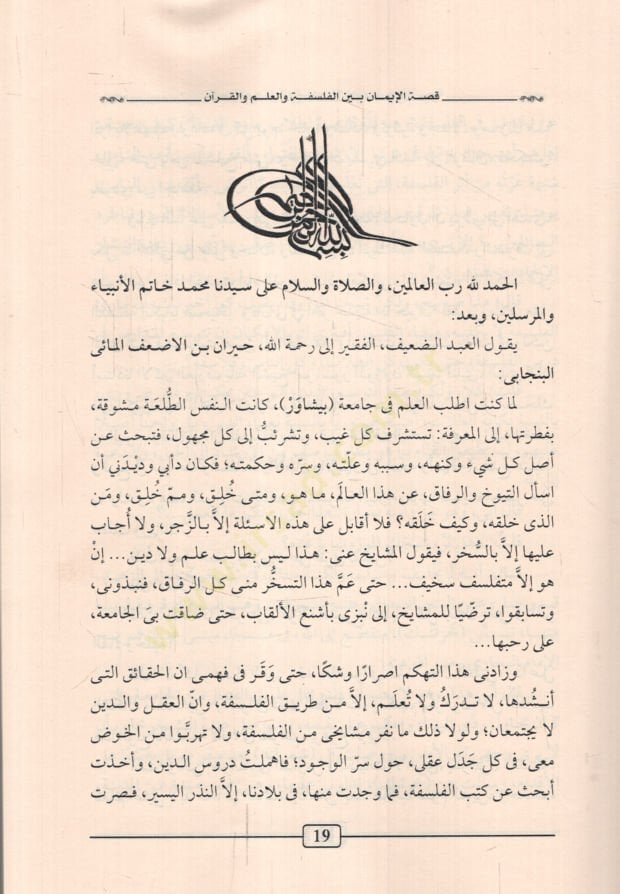 قصة الإيمان بين الفلسفة والعلم والقرآن
الحمد لله رب العالمين، والصلاة والسلام على سيدنا محمد خاتم الأنبياء
والمرسلين، وبعد:
يقول العبد الضعيف، الفقير إلى رحمة الله، حيران بن الاضعف المائى
البنجابى:
لما كنت اطلب العلم فى جامعة (بيشاوَرْ)، كانت النفس الطُّلَعَة مشوقة،
بفطرتها، إلى المعرفة: تستشرف كل غيب، وتشرئبُّ إلى كل مجهول، فتبحث عن
أصل كل شيء وكنهه، وسببه وعلّته، وسرّه وحكمته؛ فكان دأبي وديْدَني أن
اسأل التيوخ والرفاق، عن هذا العالَم، ما هو، ومتى خُلِق، وممّ خُلِق، ومَن
الذى خلقه، وكيف خَلَقه؟ فلا أقابل على هذه الاسئلة إلاَّ بالزَّجر، ولا أُجاب
عليها إلاَّ بالسُّخر، فيقول المشايخ عنى: هذا ليس بطالب علم ولا دين... إنْ
هو إلاَّ متفلسف سخيف... حتى عَمَّ هذا التسخُّر منى كل الرفاق، فنبذونى،
وتسابقوا، ترضّيًا للمشايخ، إلى نُبزى بأشنع الألقاب، حتى ضاقت بىَ الجامعة،
على رحبها...
وزادنى هذا التهكم اصرارا وشكًا، حتى وَقَر فى فهمى ان الحقائق التى
أنشُدها، لا تدرَكُ ولا تُعلَم، إلاَّ من طريق الفلسفة، وانّ العقل والدين
لا يجتمعان؛ ولولا ذلك ما نفر مشايخى من الفلسفة، ولا تهربَّوا من الخوض
معى، فى كل جَدَل عقلى، حول سرّ الوجود؛ فاهملتُ دروس الدين، وأخذت
أبحث عن كتب الفلسفة، فما وجدت منها، فى بلادنا، إلاَّ النذر اليسير، فصرت
19